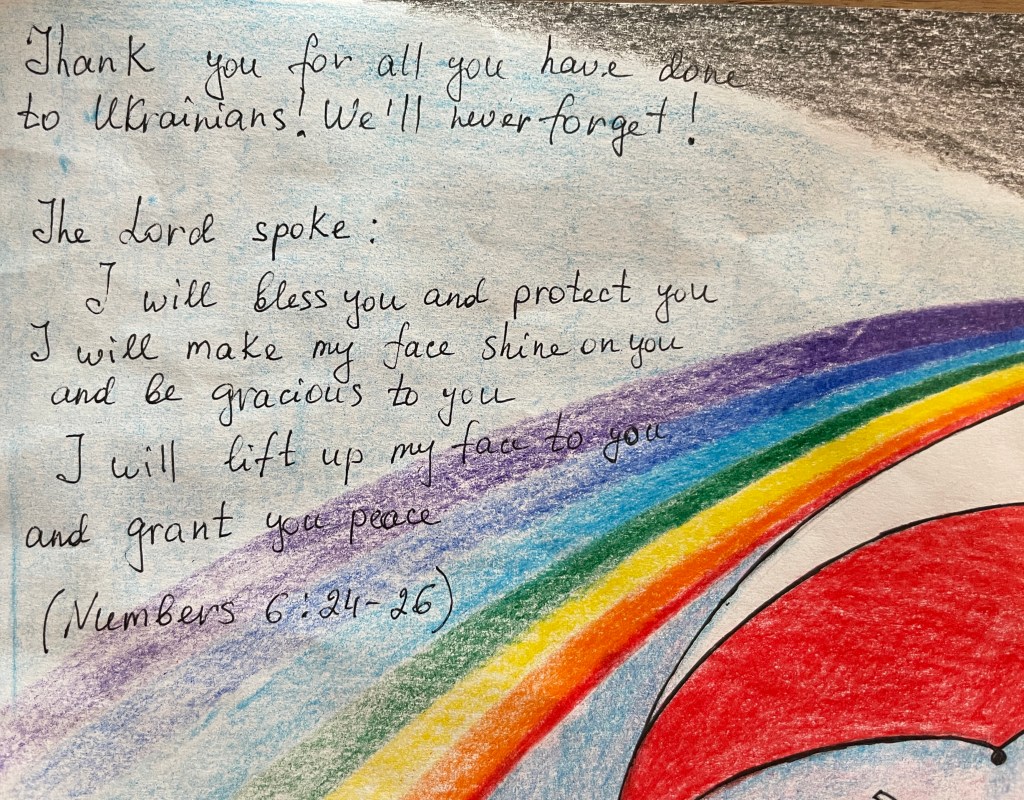 Thank you for all you have done
to Ukrainians! We'll never forget!
The Lord spoke:
I will bless you and protect you
I will make my face shine on you
and be gracious to you
I will lift up my face to you
and grant you peace
(Numbers 6:24-26)